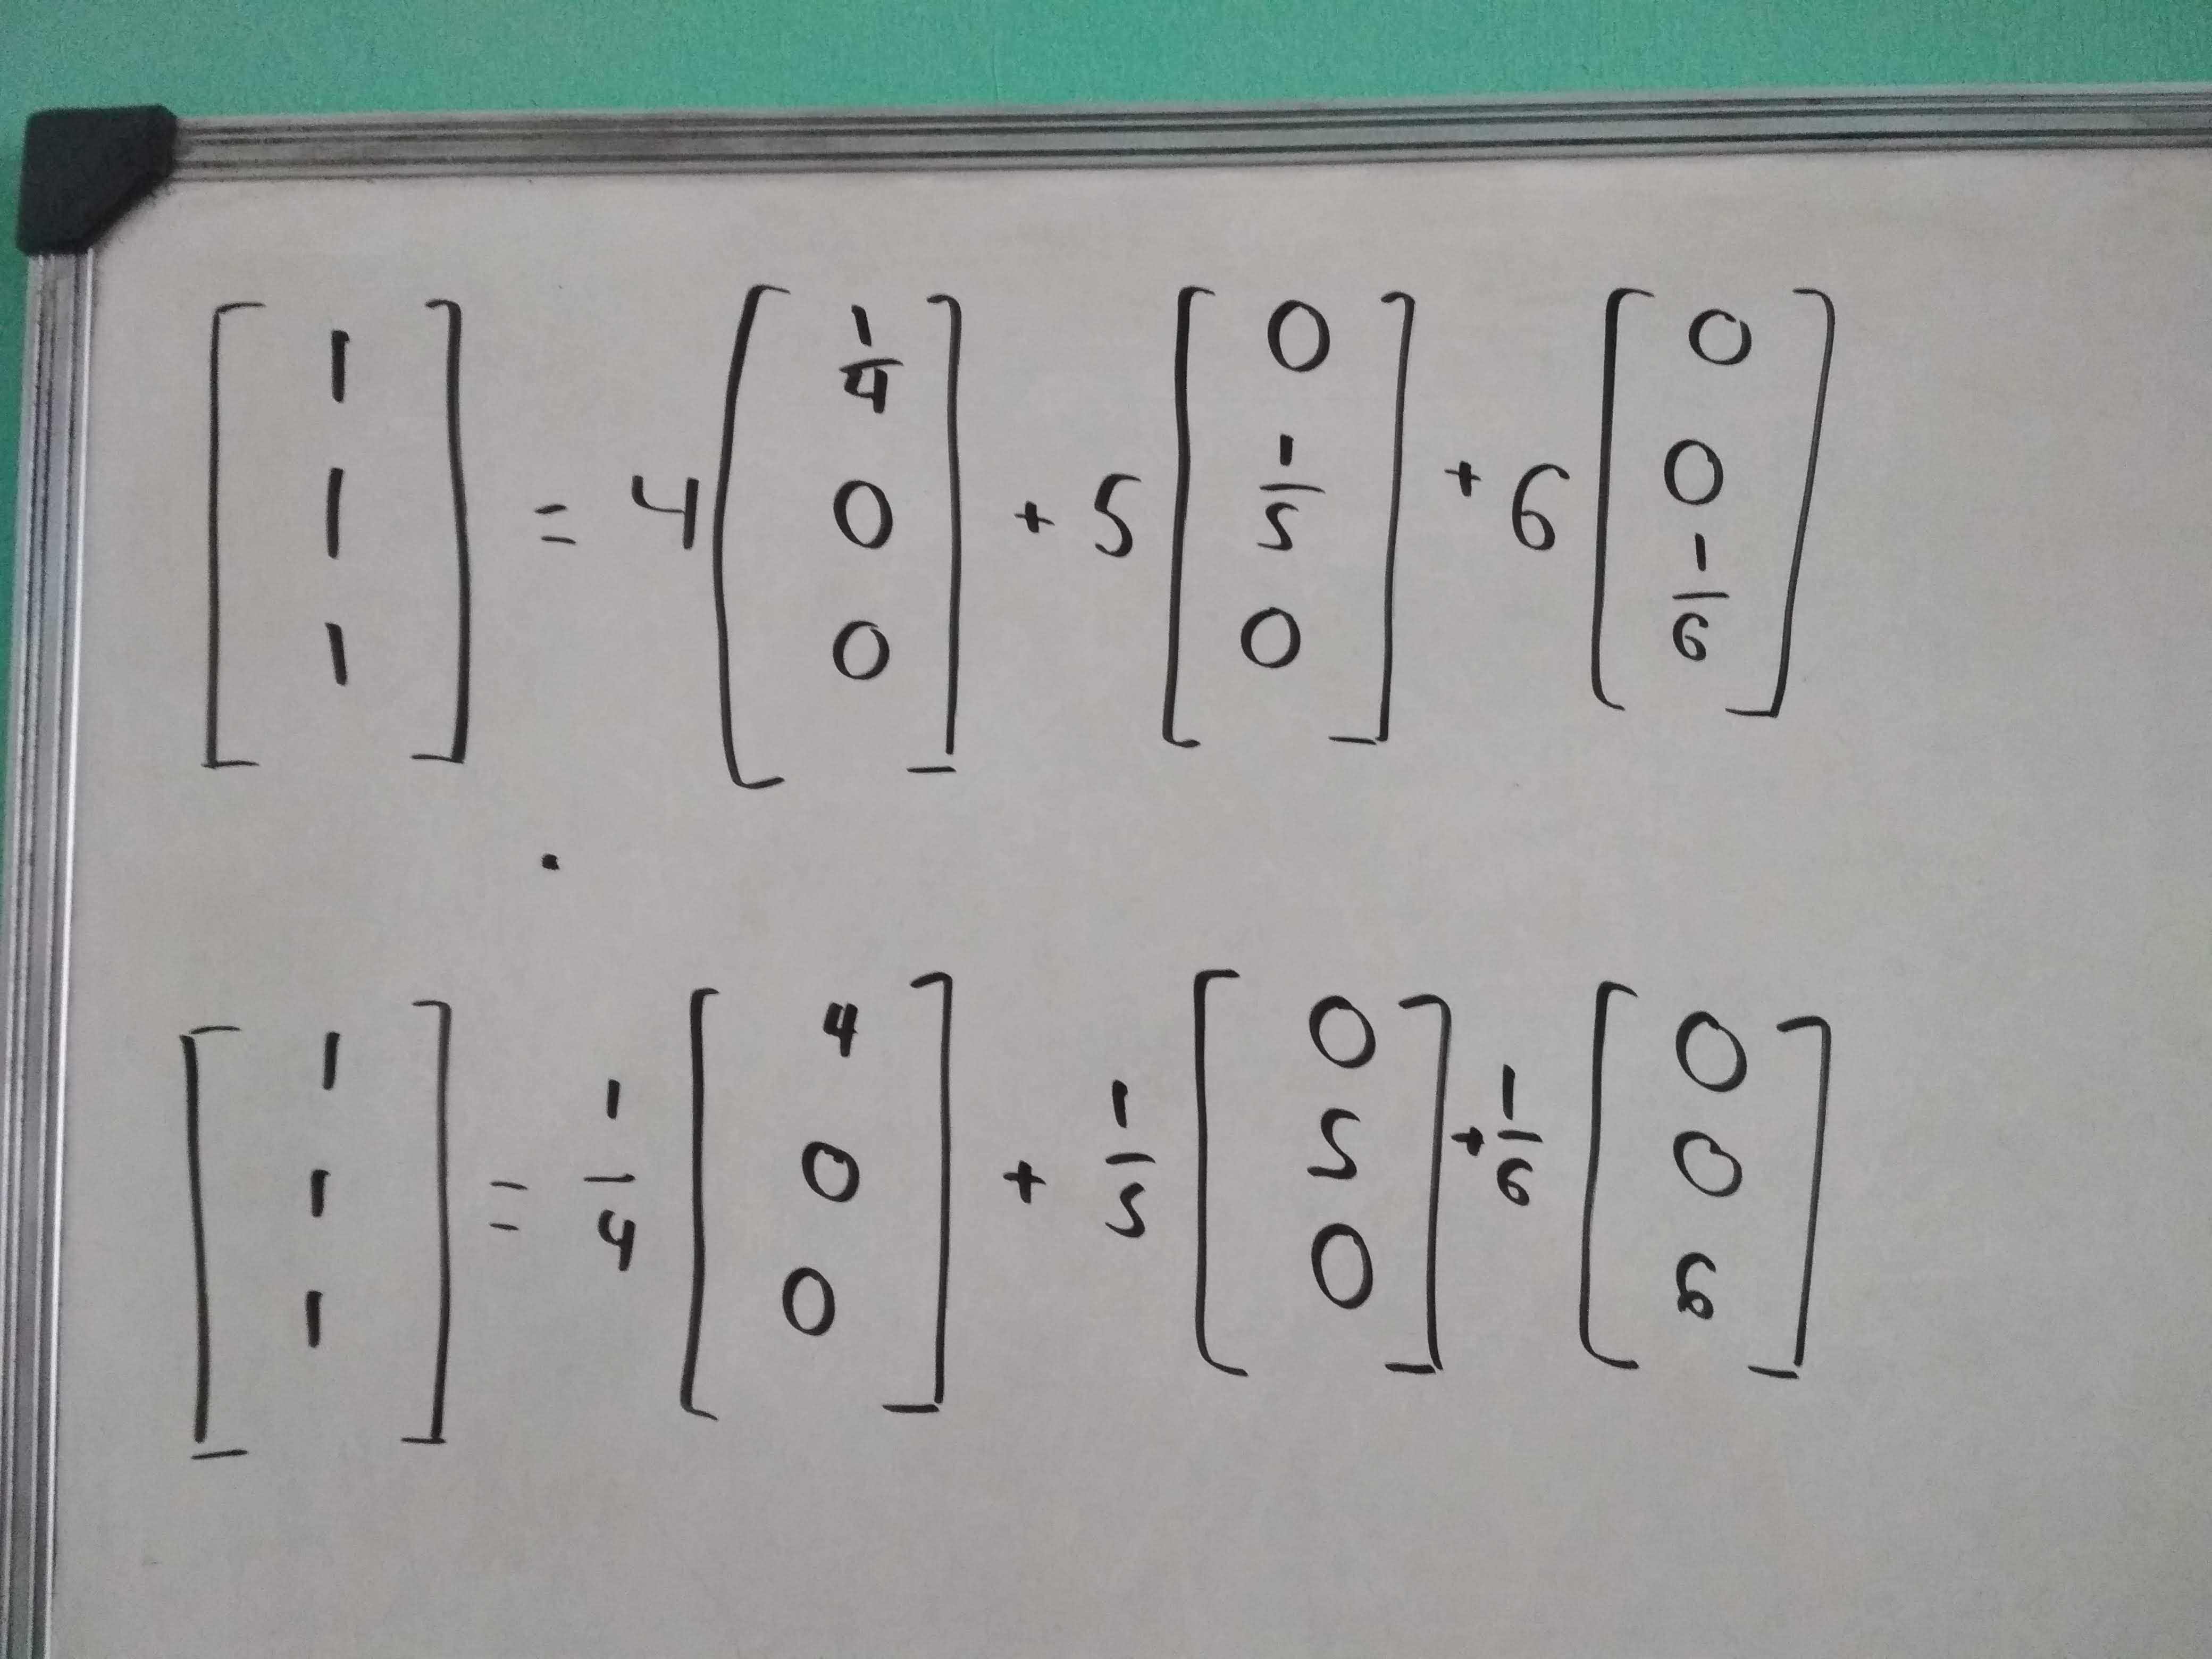 [1 1 1] = 4 [1/4 0 0] + 5 [0 1/5 0] + 6 [0 0 1/6]
[1 1 1] = 1/4 [4 0 0] + 1/5 [0 5 0] + 1/6 [0 0 6]